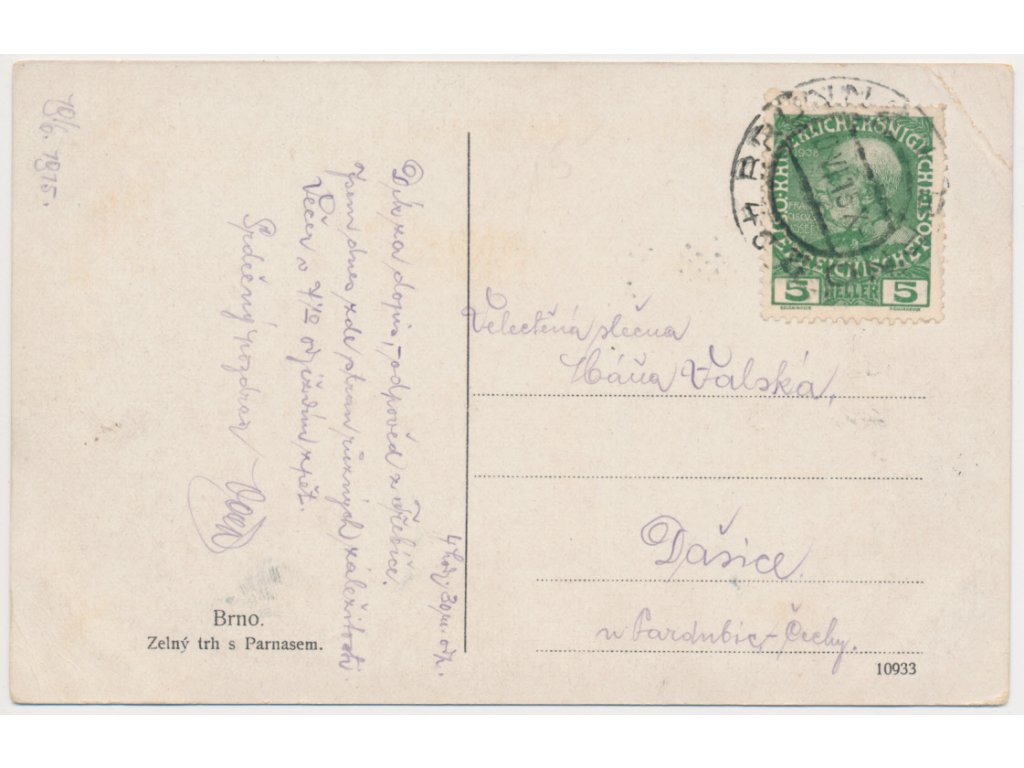 18/6. 1915.
Dík za dopis, - odpověď z Třebíče.
Jsem dnes zde stran různých záležitostí.
Večer v 7 1/2 odjíždím zpět.
Srdečný pozdrav
4 hod. 30 m. odp.
Brno.
Zelný trh s Parnasem.
BRÜNN
KAISERLICHE KÖNIGLICHE ÖSTERREICHISCHE POST
1908
5 HELLER 5
Velectěná slečna
Máňa Valská,
Dašice.
u Pardubic - Čechy.
10933